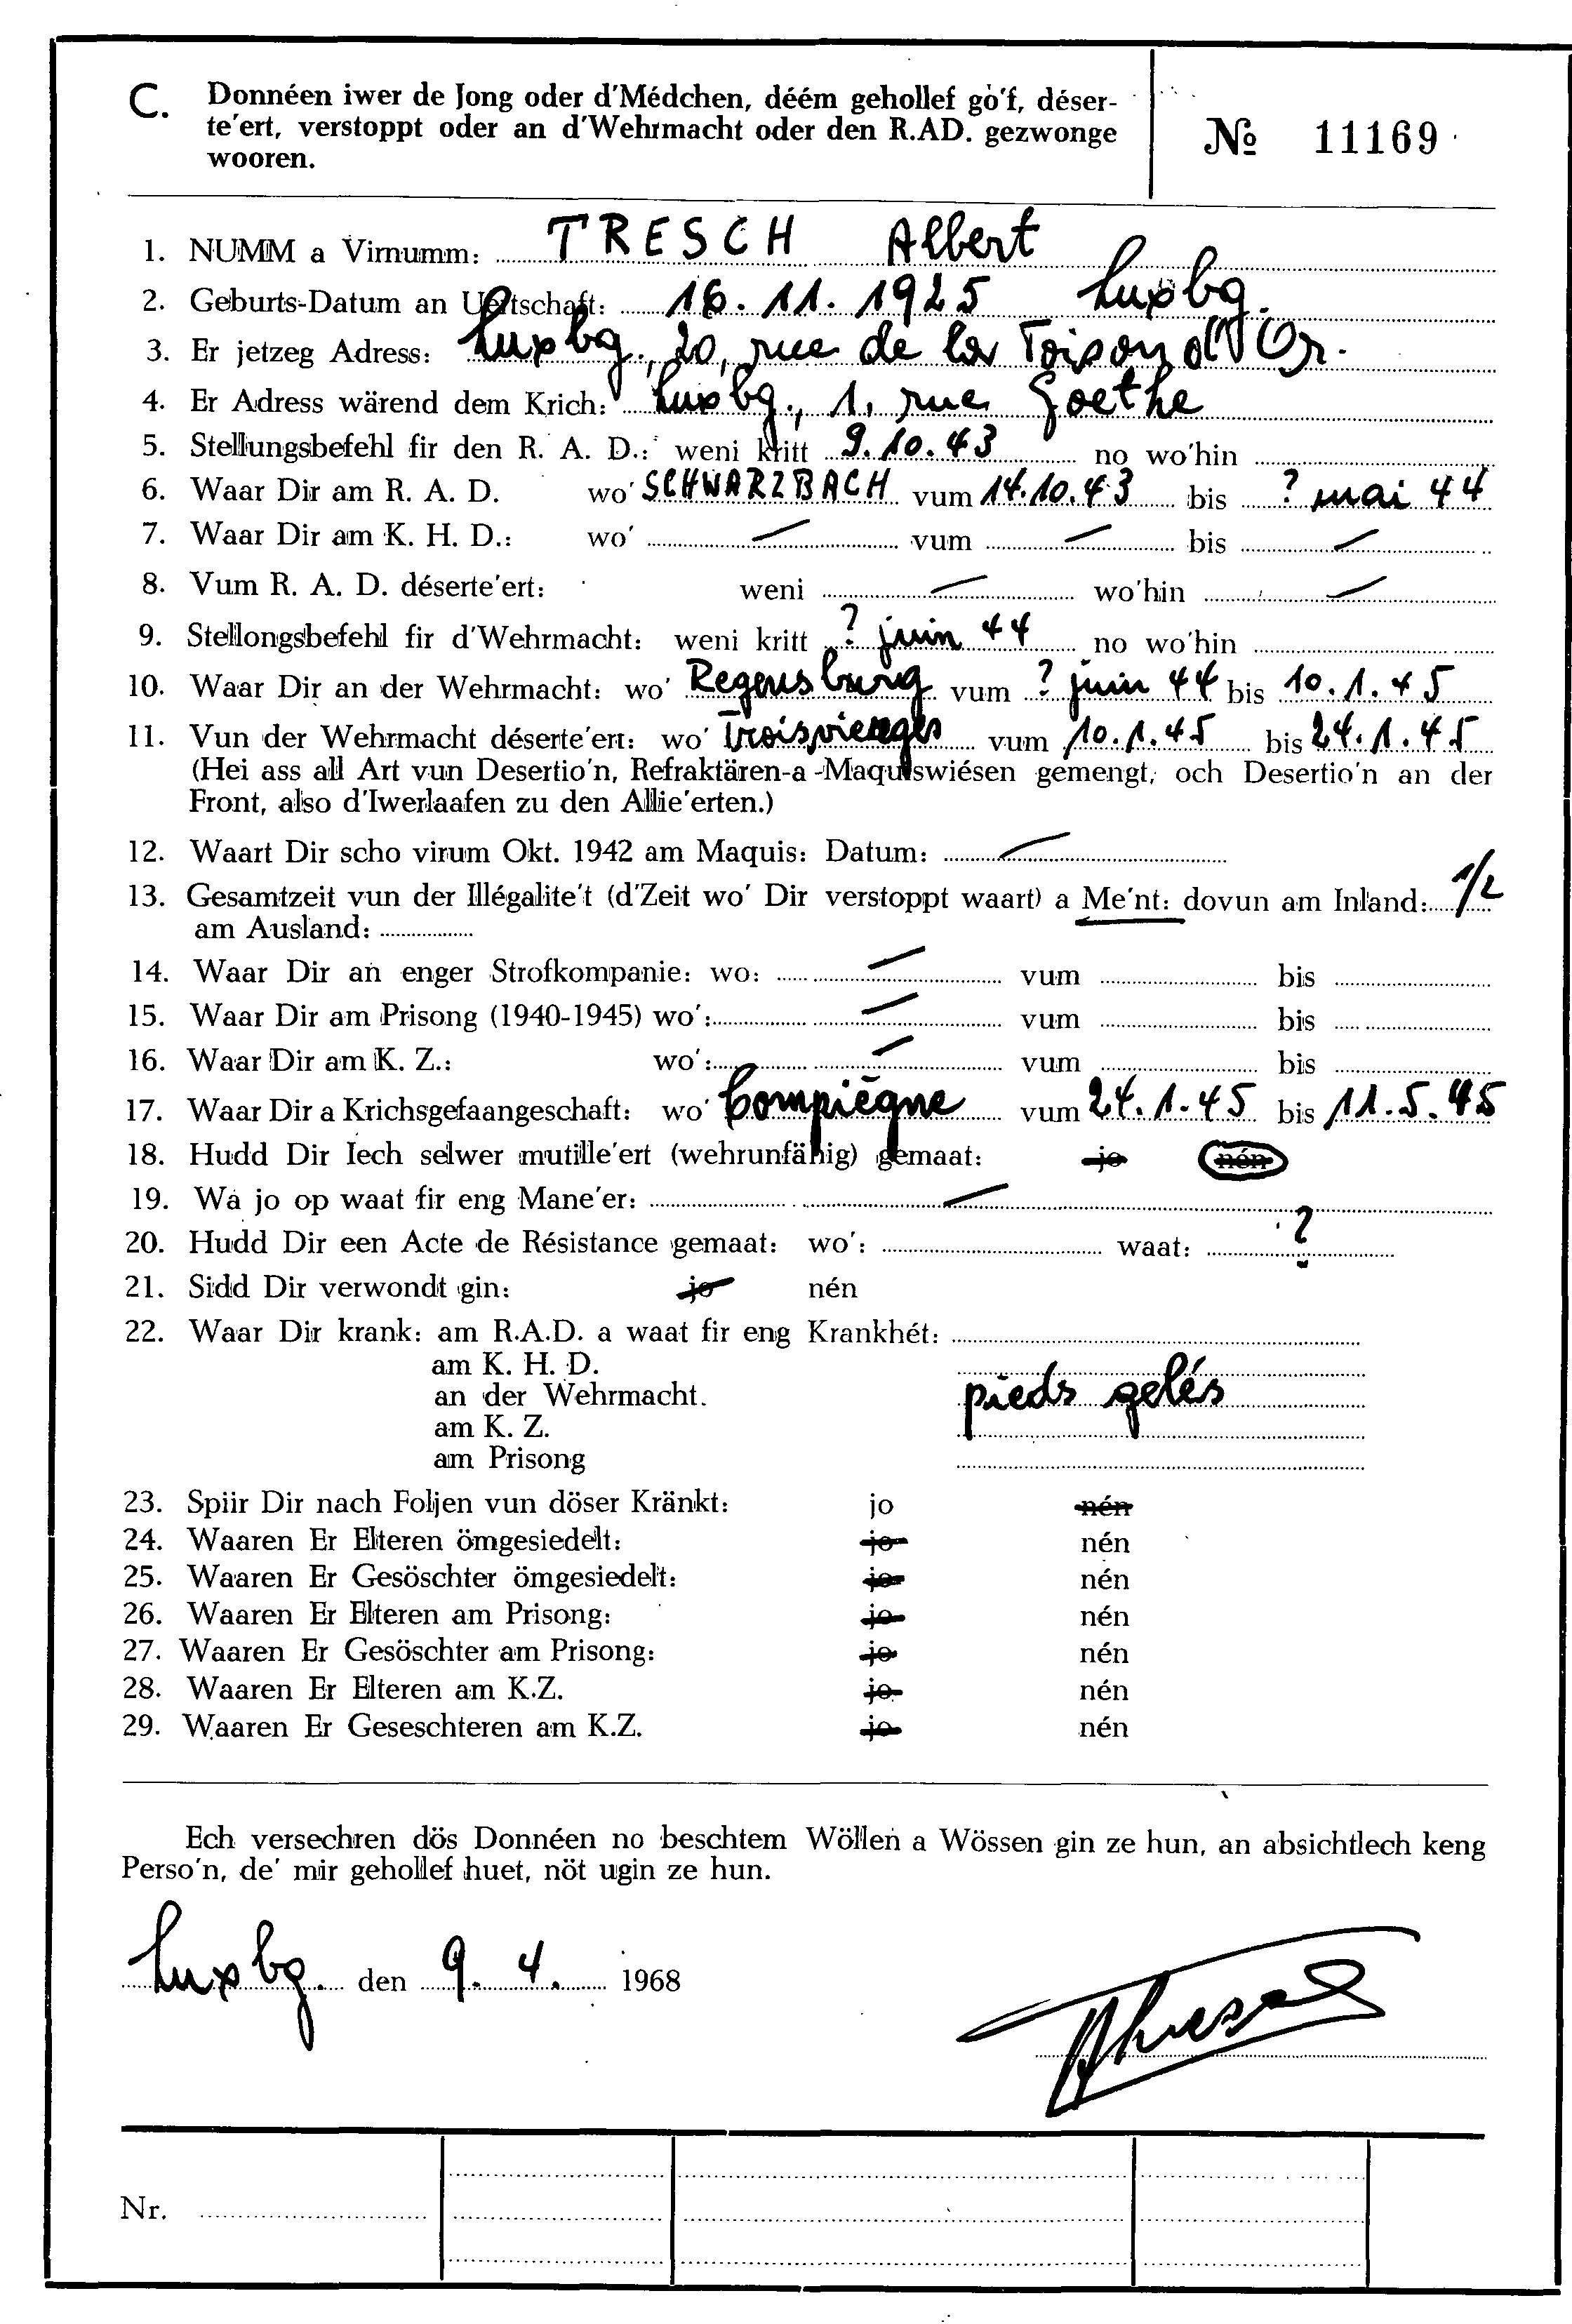 C. Donnéen iwer de Jong oder d'Médchen, déém gehollef gò'f, déser-
te'ert, verstoppt oder an d'Wehrmacht oder den R.AD. gezwonge
wooren.
№ 11169
1. NUMM a Virnumm: TRESCH Albert
2. Geburts-Datum an Uertschaft: 16. 11. 1925 Luxbg.
3. Er jetzeg Adress: Luxbg., 20, rue de la Toison d'Or.
4. Er Adress wärend dem Krich: Luxbg., 1, rue Goethe
5. Stellungsbefehl fir den R. A. D.: weni kritt 9.10.43 no wo'hin
6. Waar Dir am R. A. D. wo' SCHWARZBACH vum 14.10.43 bis ? mai 44
7. Waar Dir am K. H. D.: wo' — vum — bis —
8. Vum R. A. D. déserte'ert: weni — wo'hin —
9. Stellongsbefehl fir d'Wehrmacht: weni kritt ? juin 44 no wo'hin
10. Waar Dir an der Wehrmacht: wo' Regensburg vum ? juin 44 bis 10.1.45
11. Vun der Wehrmacht déserte'ert: wo' Troisvierges vum 10.1.45 bis 24.1.45
(Hei ass all Art vun Desertio'n, Refraktären-a -Maquiswiésen gemengt, och Desertio'n an der
Front, also d'Iwerlaafen zu den Allie'erten.)
12. Waart Dir scho virum Okt. 1942 am Maquis: Datum: —
13. Gesamtzeit vun der Illégalite't (d'Zeit wo' Dir verstoppt waart) a Me'nt: dovun am Inland: 1/2
am Ausland:
14. Waar Dir an enger Strofkompanie: wo: — vum bis
15. Waar Dir am Prisong (1940-1945) wo': — vum bis
16. Waar Dir am K. Z.: wo': — vum bis
17. Waar Dir a Krichsgefaangeschaft: wo' Compiègne vum 24.1.45 bis 11.5.45
18. Hudd Dir Iech selwer mutille'ert (wehrunfähig) gemaat: jo nén
19. Wa jo op waat fir eng Mane'er: —
20. Hudd Dir een Acte de Résistance gemaat: wo': waat: ?
21. Sidd Dir verwondt gin: jo nén
22. Waar Dir krank: am R.A.D. a waat fir eng Krankhét:
am K. H. D.
an der Wehrmacht. pieds gelés
am K. Z.
am Prisong
23. Spiir Dir nach Foljen vun döser Kränkt: jo nén
24. Waaren Er Elteren ömgesiedelt: jo nén
25. Waaren Er Gesöschter ömgesiedelt: jo nén
26. Waaren Er Elteren am Prisong: jo nén
27. Waaren Er Gesöschter am Prisong: jo nén
28. Waaren Er Elteren am K.Z. jo nén
29. Waaren Er Geseschteren am K.Z. jo nén
Ech versechren dös Donnéen no beschtem Wöllen a Wössen gin ze hun, an absichtlech keng
Perso'n, de' mir gehollef huet, nöt ugin ze hun.
Luxbg. den 9. 4. 1968
Nr.